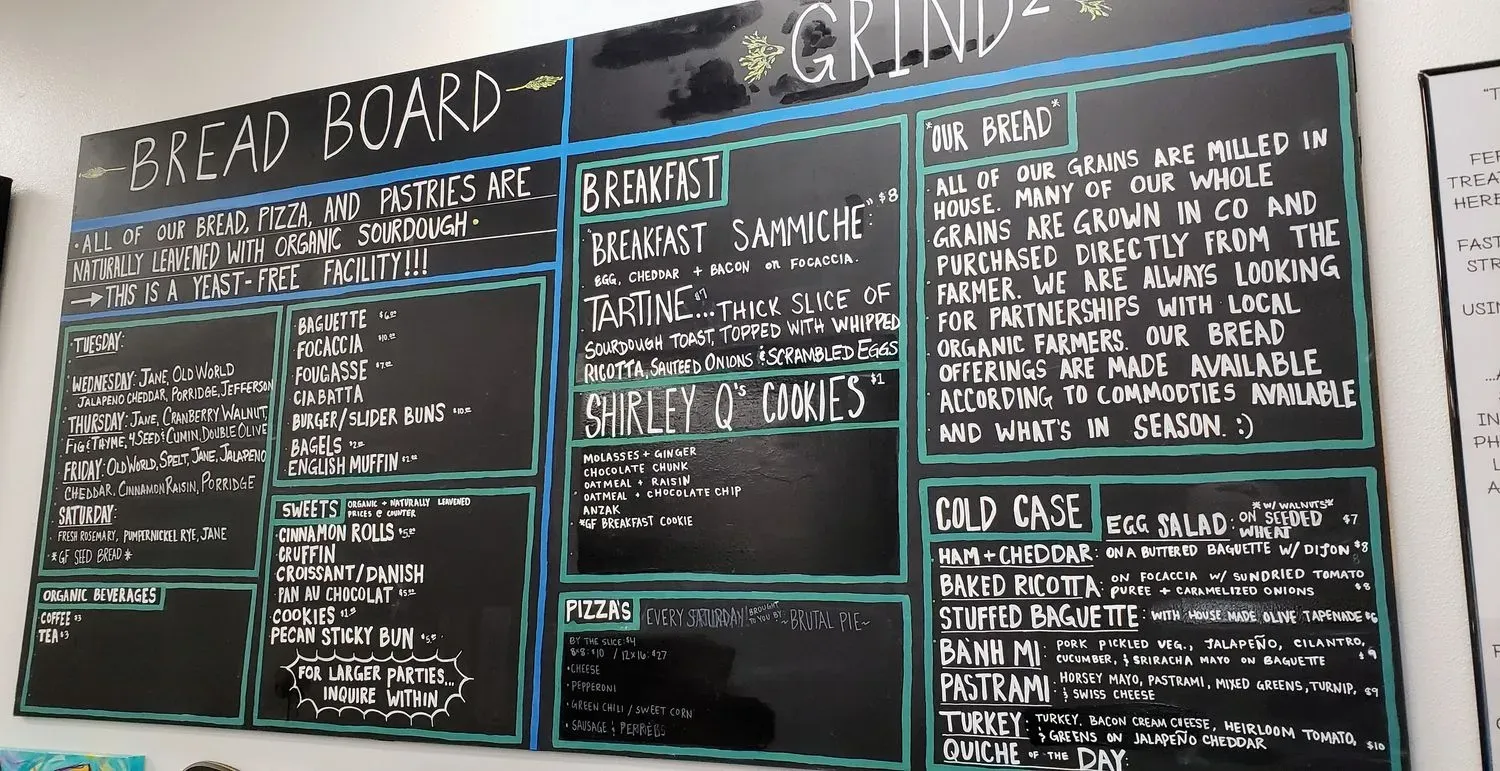 BREAD BOARD
• ALL OF OUR BREAD, PIZZA, AND PASTRIES ARE
NATURALLY LEAVENED WITH ORGANIC SOURDOUGH •
→ THIS IS A YEAST-FREE FACILITY!!!
TUESDAY:
WEDNESDAY: JANE, OLD WORLD
JALAPENO CHEDDAR, PORRIDGE, JEFFERSON
THURSDAY: JANE, CRANBERRY WALNUT,
FIG & THYME, 4 SEED & CUMIN, DOUBLE OLIVE
FRIDAY: OLD WORLD, SPELT, JANE, JALAPENO
CHEDDAR, CINNAMON RAISIN, PORRIDGE
SATURDAY:
FRESH ROSEMARY, PUMPERNICKEL RYE, JANE
* GF SEED BREAD *
ORGANIC BEVERAGES
COFFEE $3
TEA $3
BAGUETTE $6.00
FOCACCIA $10.00
FOUGASSE $7.00
CIABATTA
BURGER/SLIDER BUNS $10.00
BAGELS $2.00
ENGLISH MUFFIN $2.00
SWEETS
ORGANIC + NATURALLY LEAVENED
PRICES @ COUNTER
CINNAMON ROLLS $5.00
CRUFFIN
CROISSANT/DANISH
PAN AU CHOCOLAT $5.00
COOKIES
PECAN STICKY BUN
FOR LARGER PARTIES...
INQUIRE WITHIN
GRIND
BREAKFAST
"BREAKFAST SAMMICHE": $8
EGG, CHEDDAR + BACON on FOCACCIA.
TARTINE $7...THICK SLICE OF
SOURDOUGH TOAST, TOPPED WITH WHIPPED
RICOTTA, SAUTEED ONIONS & SCRAMBLED EGGS
SHIRLEY Q'S COOKIES $1
MOLASSES + GINGER
CHOCOLATE CHUNK
OATMEAL + RAISIN
OATMEAL + CHOCOLATE CHIP
ANZAK
*GF BREAKFAST COOKIE
PIZZA'S
EVERY SATURDAY! BROUGHT TO YOU BY ~BRUTAL PIE~
BY THE SLICE: $4
8x8: $10 / 12x16: $27
• CHEESE
• PEPPERONI
• GREEN CHILI / SWEET CORN
• SAUSAGE &
*OUR BREAD*
ALL OF OUR GRAINS ARE MILLED IN
HOUSE. MANY OF OUR WHOLE
GRAINS ARE GROWN IN CO AND
PURCHASED DIRECTLY FROM THE
FARMER. WE ARE ALWAYS LOOKING
FOR PARTNERSHIPS WITH LOCAL
ORGANIC FARMERS. OUR BREAD
OFFERINGS ARE MADE AVAILABLE
ACCORDING TO COMMODTIES AVAILABLE
AND WHAT'S IN SEASON. :)
COLD CASE
EGG SALAD: ON SEEDED WHEAT *W/ WALNUTS* $7
HAM + CHEDDAR: ON A BUTTERED BAGUETTE W/ DIJON $8
BAKED RICOTTA: ON FOCACCIA W/ SUNDRIED TOMATO
PUREE + CARAMELIZED ONIONS $8
STUFFED BAGUETTE: WITH HOUSE MADE OLIVE TAPENADE $6
BÀNH MI: PORK PICKLED VEG., JALAPEÑO, CILANTRO,
CUCUMBER, & SRIRACHA MAYO ON BAGUETTE $9
PASTRAMI: HORSEY MAYO, PASTRAMI, MIXED GREENS, TURNIP,
& SWISS CHEESE $9
TURKEY: TURKEY, BACON CREAM CHEESE, HEIRLOOM TOMATO,
& GREENS ON JALAPEÑO CHEDDAR $10
QUICHE OF THE DAY:
HERE
USING